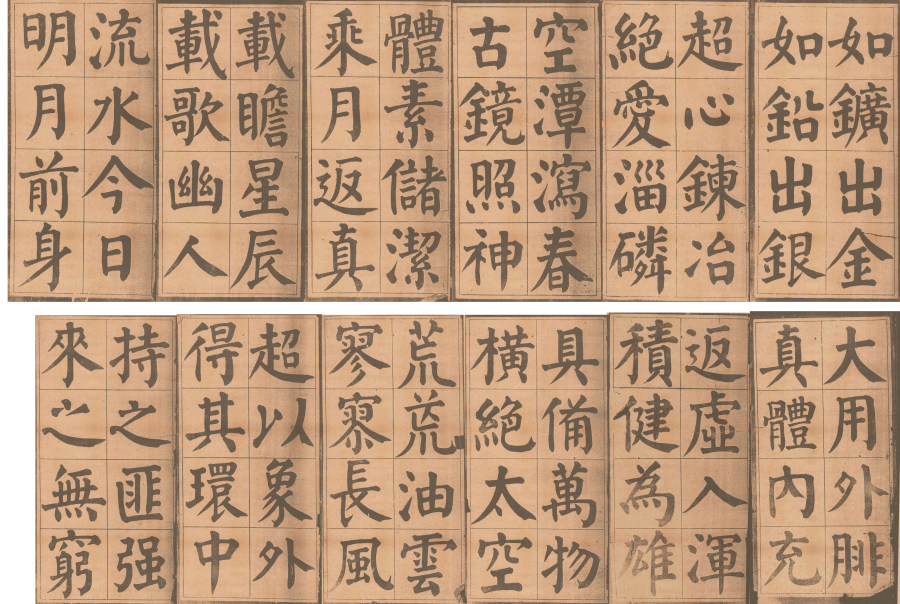 如鑛出金
如鉛出銀
超心鍊冶
絕愛淄磷
空潭瀉春
古鏡照神
體素儲潔
乘月返真
載瞻星辰
載歌幽人
流水今日
明月前身
大用外腓
真體內充
返虛入渾
積健為雄
具備萬物
橫絕太空
荒荒油雲
寥寥長風
超以象外
得其環中
持之匪强
來之無窮